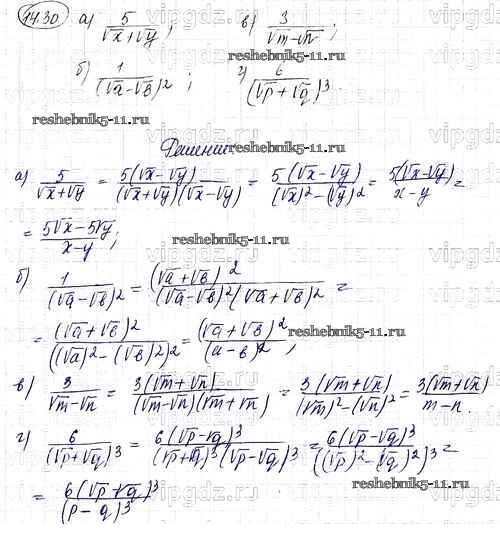 14.30 а) 5/(√x+√y); в) 3/(√m-√n);
б) 1/(√a-√b)²; г) 6/(√p+√q)³.
reshebnik5-11.ru
reshebnik5-11.ru
reshebnik5-11.ru
Решение:
а) 5/(√x+√y) = 5(√x-√y)/((√x+√y)(√x-√y)) = 5(√x-√y)/((√x)²-(√y)²) = 5(√x-√y)/(x-y) =
= (5√x-5√y)/(x-y);
reshebnik5-11.ru
б) 1/(√a-√b)² = (√a+√b)²/((√a-√b)²(√a+√b)²) =
= (√a+√b)²/((√a)²-(√b)²)² = (√a+√b)²/(a-b)²;
reshebnik5-11.ru
в) 3/(√m-√n) = 3(√m+√n)/((√m-√n)(√m+√n)) = 3(√m+√n)/((√m)²-(√n)²) = 3(√m+√n)/(m-n).
г) 6/(√p+√q)³ = 6(√p-√q)³/((√p+√q)³(√p-√q)³) = 6(√p-√q)³/((√p)²-(√q)²)³ =
= 6(√p+√q)³/(p-q)³
reshebnik5-11.ru
vipgdz.ru